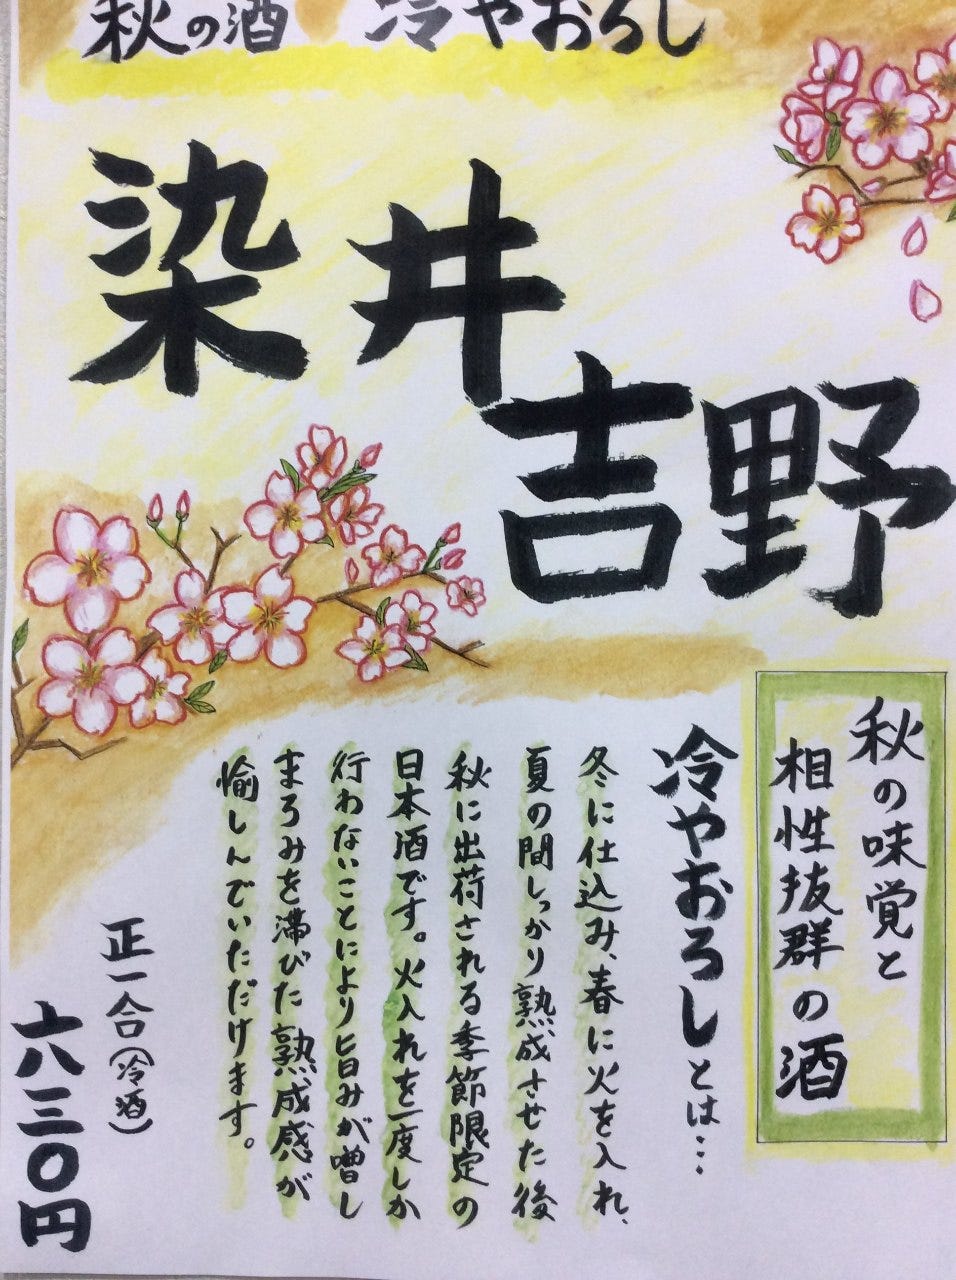 秋の酒 冷やおろし
染井
吉野
秋の味覚と
相性抜群の酒
冷やおろしとは…
冬に仕込み、春に火を入れ、
夏の間しっかり熟成させた後
秋に出荷される季節限定の
日本酒です。火入れを一度しか
行わないことにより旨みが増し
まろみを滞びた熟成感が
愉しんでいただけます。
正一合(冷酒)
六三〇円